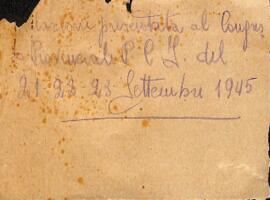 presentata al Congres
Provinciale P.C.I. del
21. 22. 23 Settembre 1945